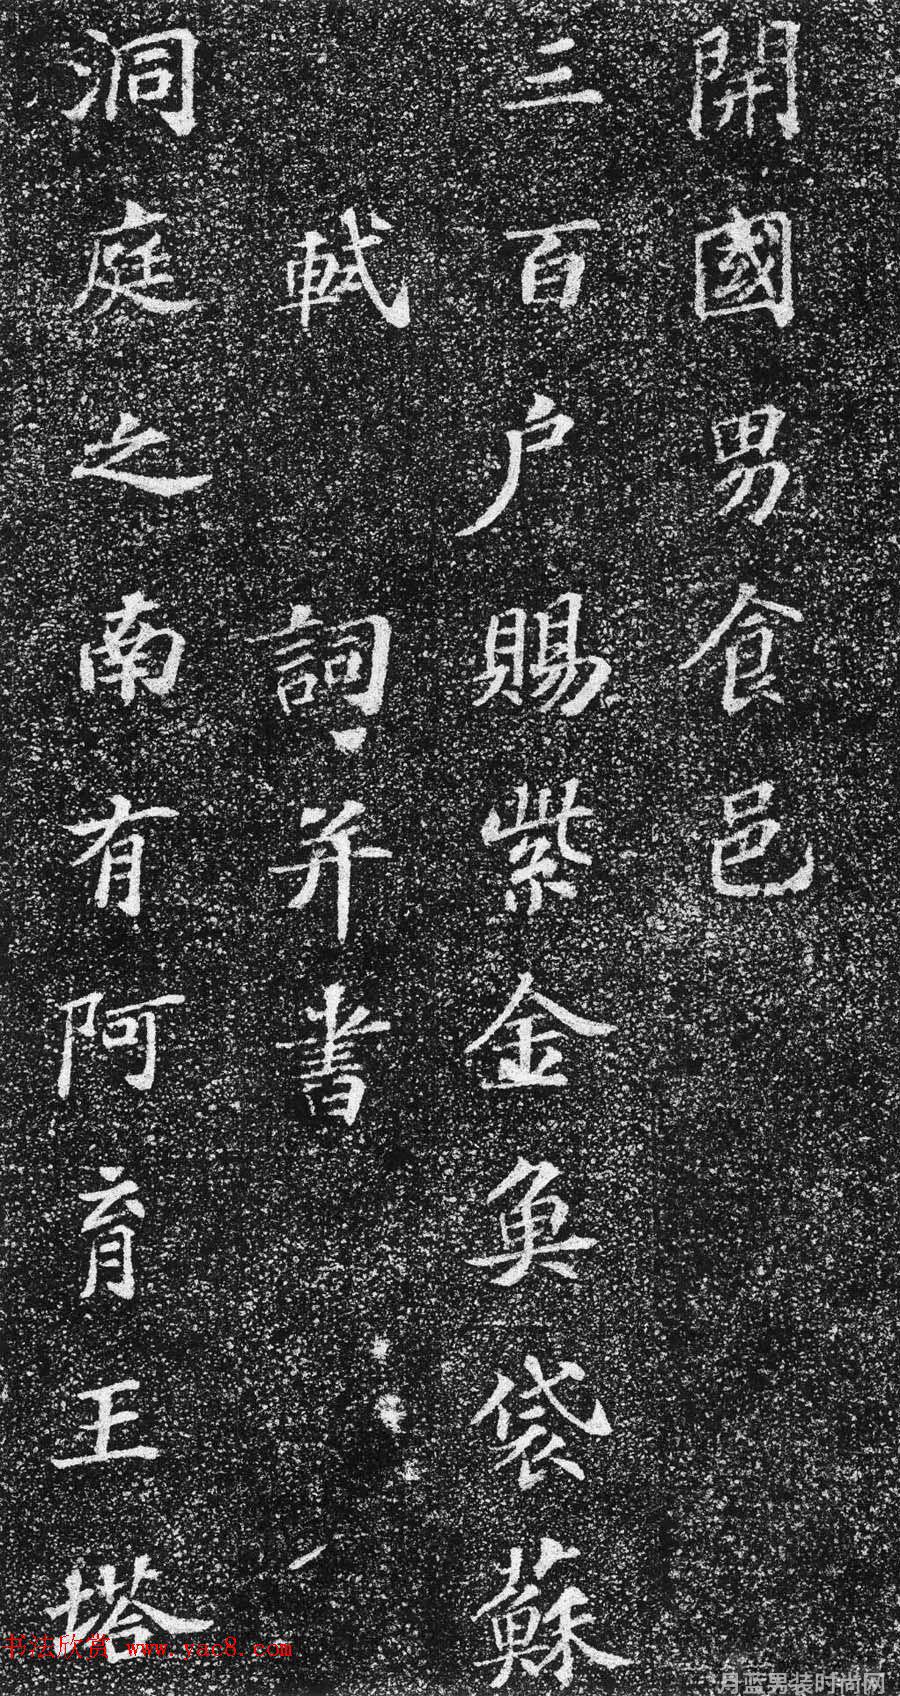 開國男食邑
三百户賜紫金魚袋蘇
軾 詞并書
洞庭之南有阿育王塔
书法欣赏 www.yac8.com
月蓝男装时尚网